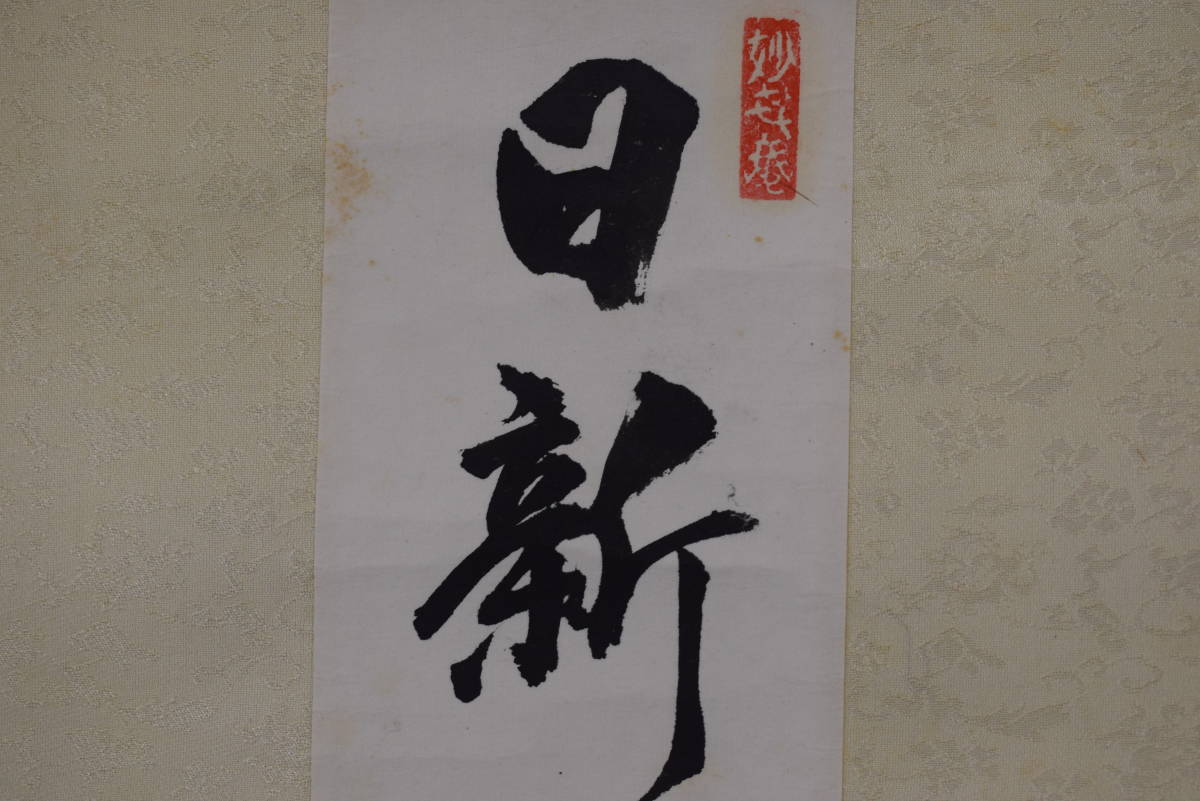 妙㐂庵
日新